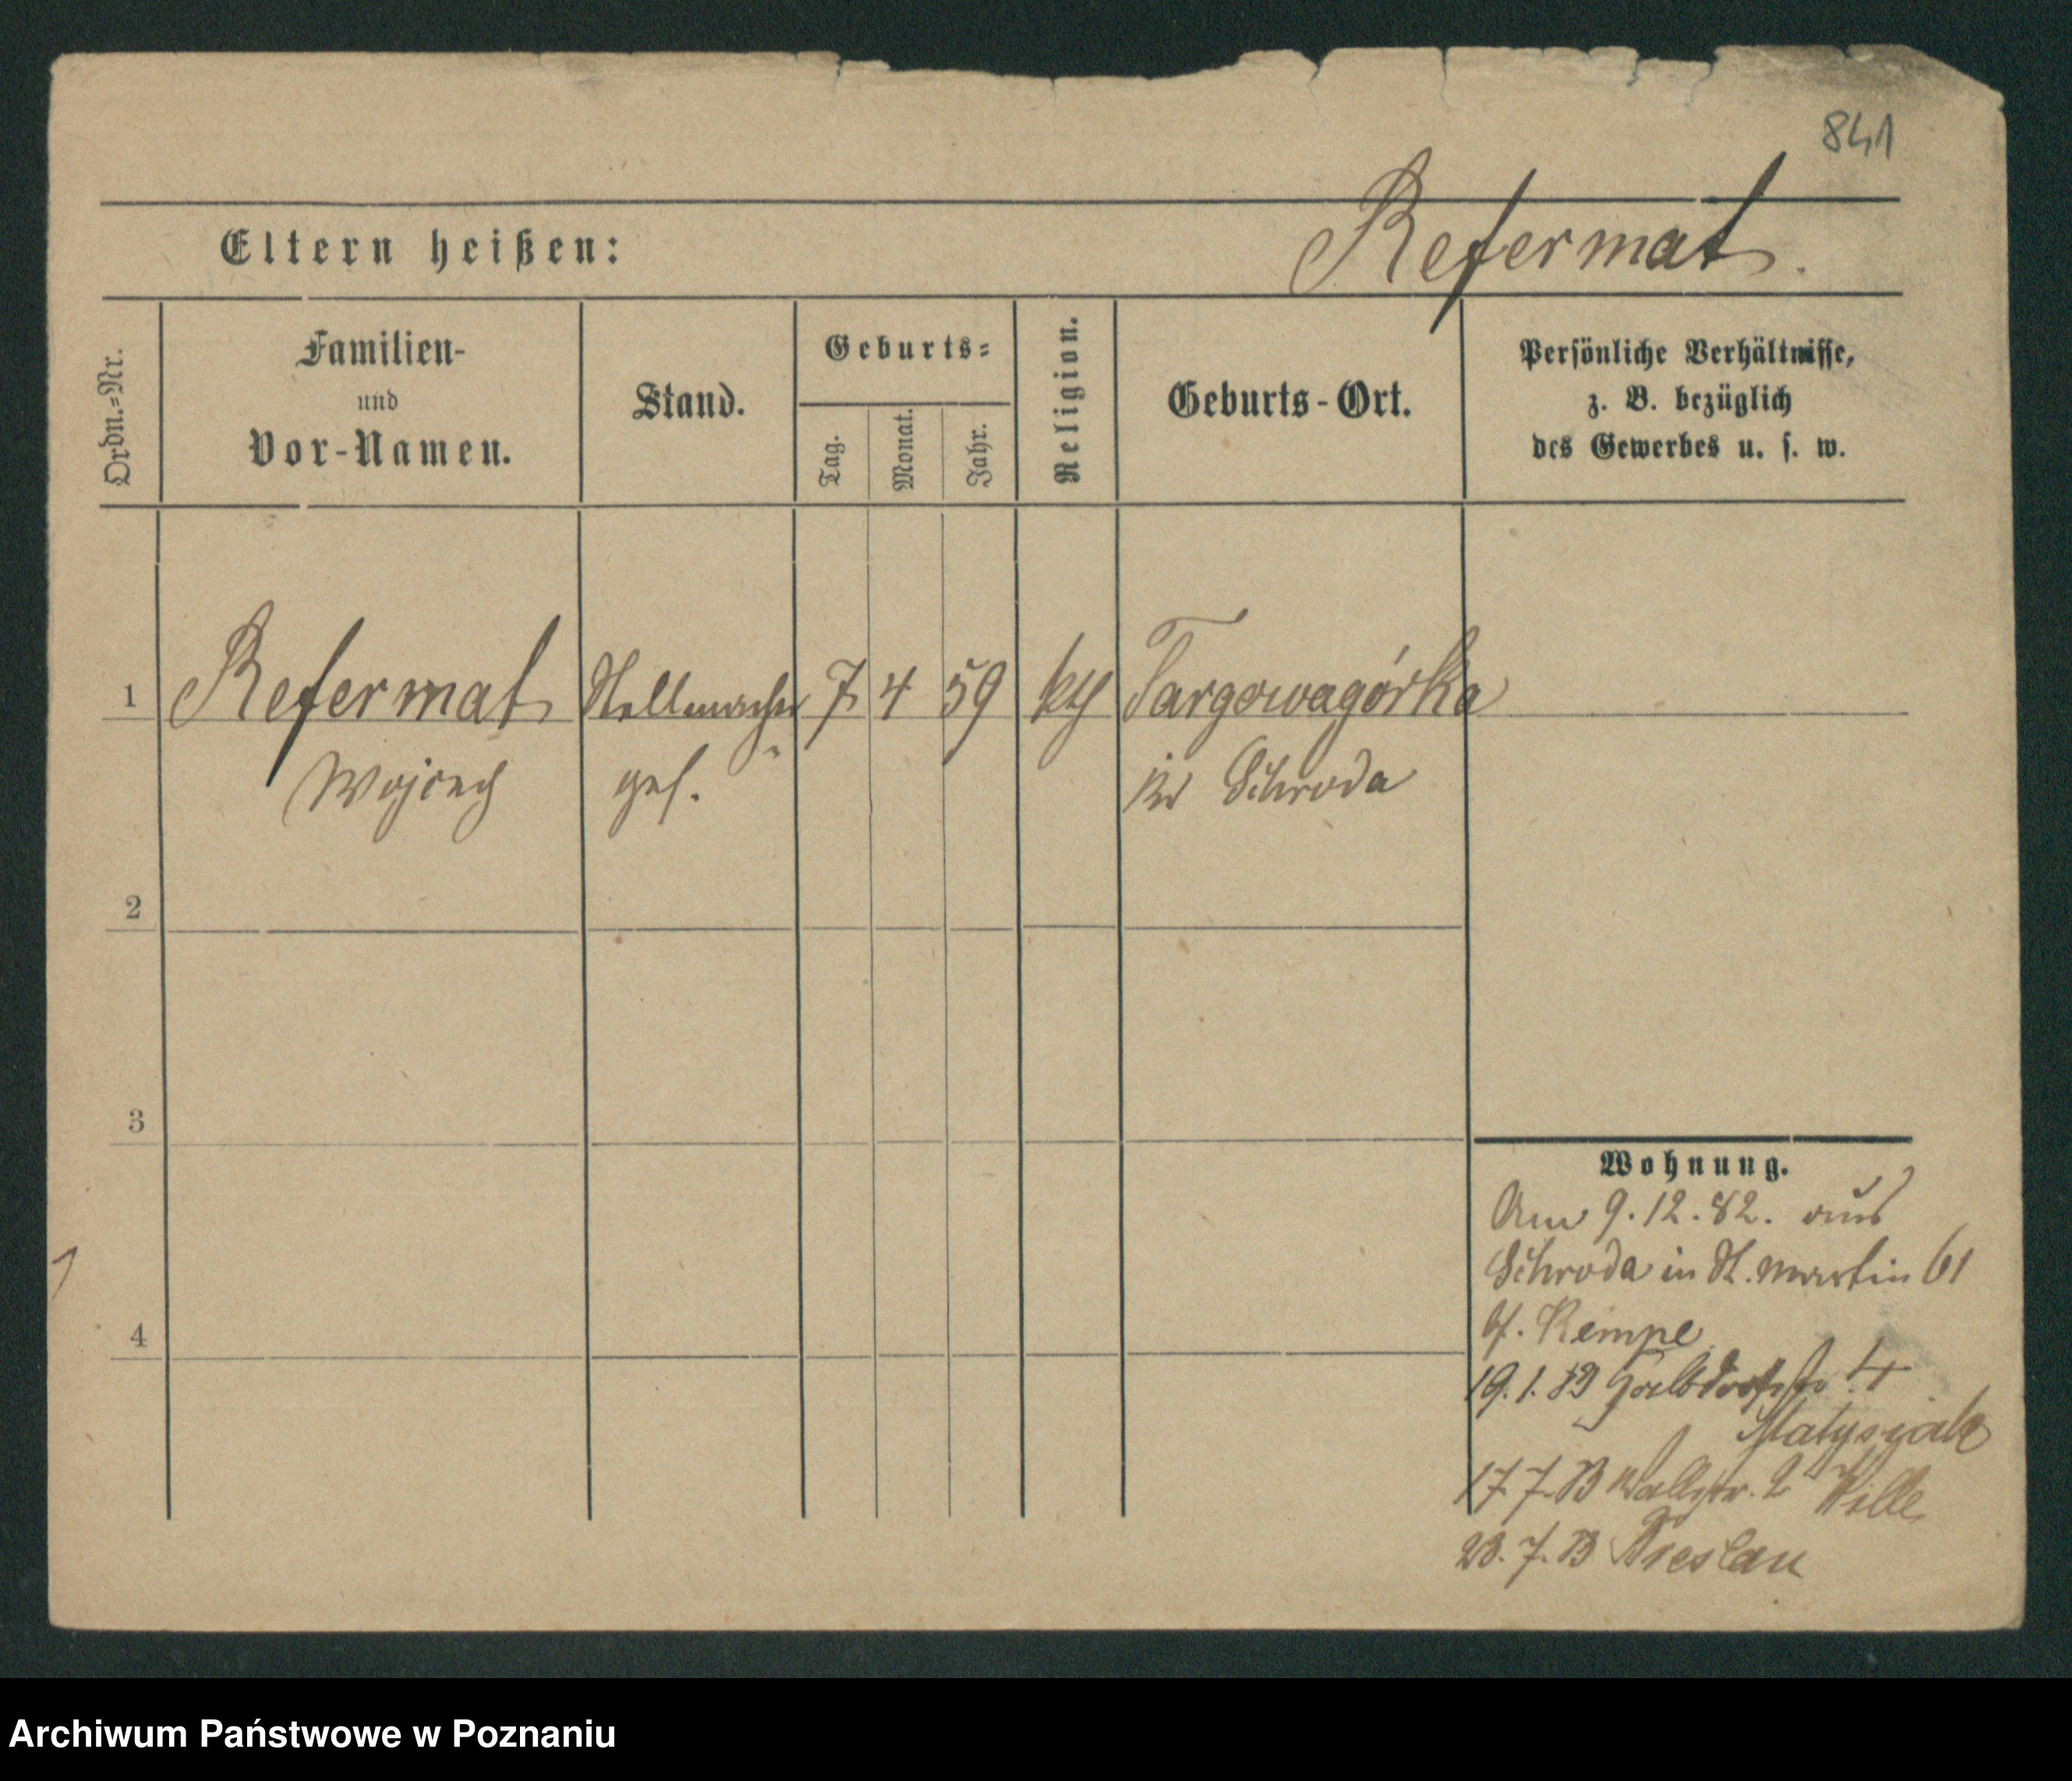 841
Eltern heißen:
Refermat.
Ordn.=Nr.
Familien-
und
Vor-Namen.
Stand.
Geburts=
Tag.
Monat.
Jahr.
Religion.
Geburts-Ort.
Persönliche Verhältnisse,
z. B. bezüglich
des Gewerbes u. s. w.
1 Refermat Stellmacher 7 4 59 kth Targowagórka
Wojciech ges. Kr Schroda
2
3
4
Wohnung.
Am 9.12.82. aus
Schroda in St. Martin 61
b/. Rempe
19. 1. 83 4
Matysiak
17 7. 83 Wallstr. 2 Wille
23. 7. 83 Breslau
Archiwum Państwowe w Poznaniu